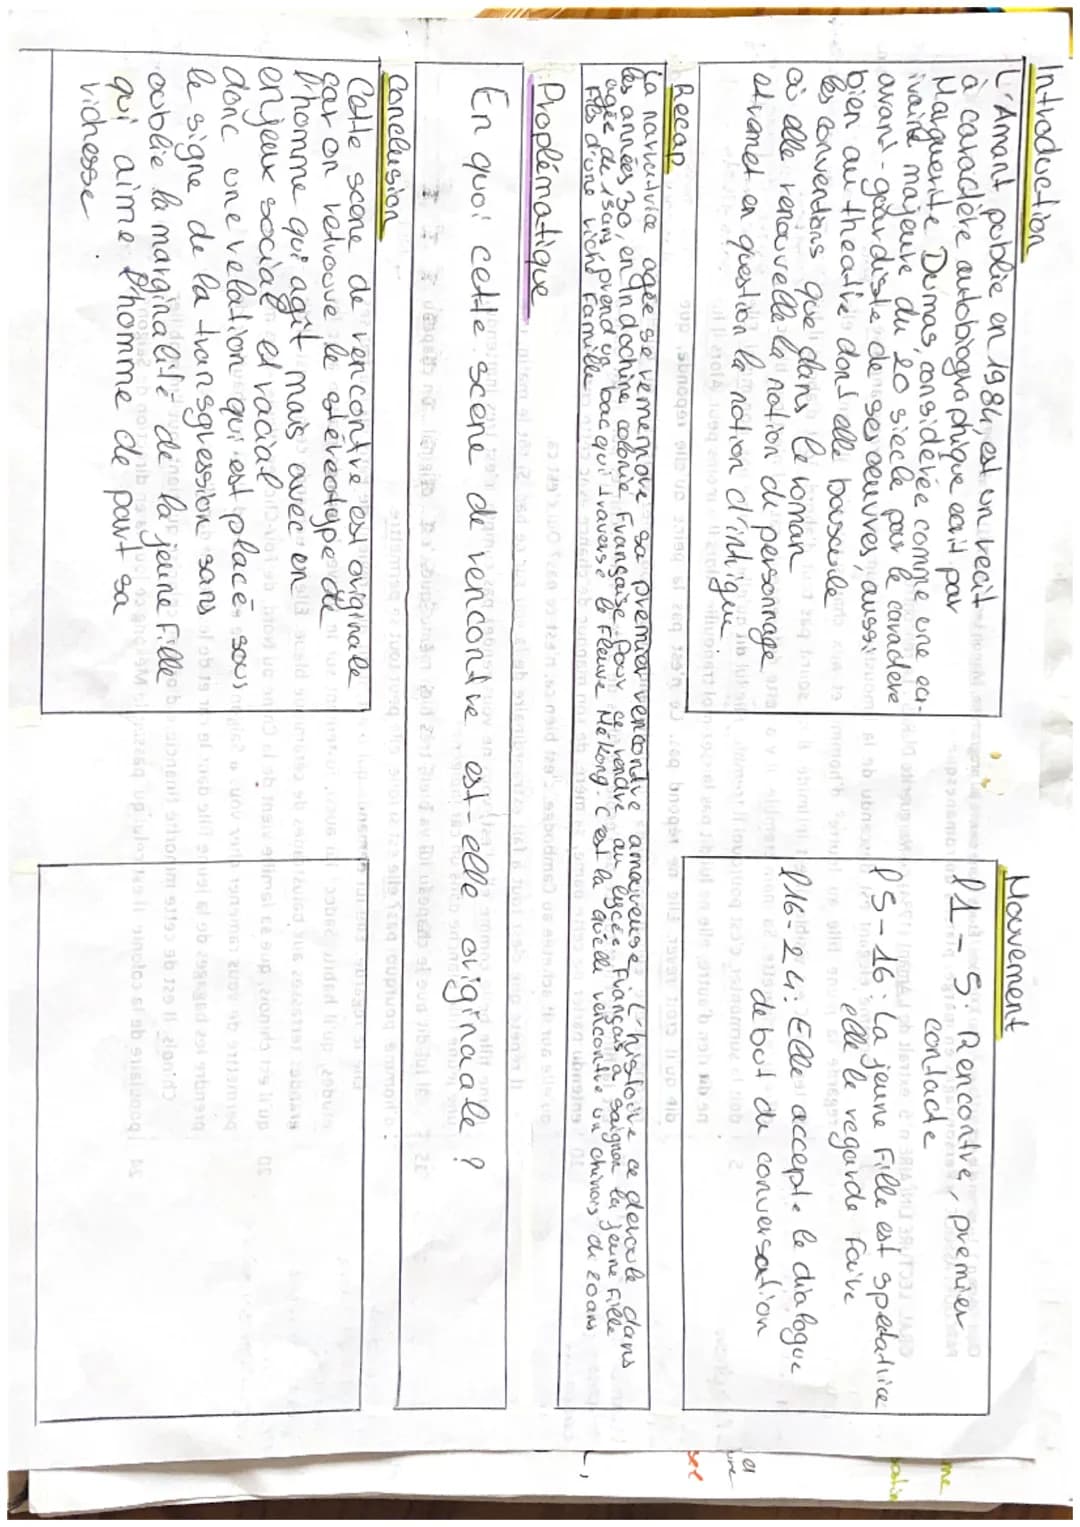 Introduction
L'Amant publié en 1984, est un recit
à caractère autobiographique ecrit par
Marguerite Dumas, considérée comme une ecri-
ivaine majeure du 20 siecle par le caractere
avant-gardiste de ses oeuvres, aussi
bien au theatre dont elle bouscule
les conventions que dans le roman
où elle renouvelle la notion de personnage
et remet en question la notion d'intrigue.
Mouvement
l1-5: Rencontre, premier
contacte
l5-16: La jeune fille est spectatrice
elle le regarde faire
l16-24: Elle accepte le dialogue
debut de conversation
Recap
La narratrice agée se rememore sa premier rencontre amoureuse. L'histoire ce deroule dans
les années 30, en Indochine colonie Française. Pour ce rendre au lycée Français à saigon la jeune fille
agée de 15ans prend un bac qui traverse le fleuve Mékong. C'est la qu'elle rencontre un chinois de 20ans
fils d'une riche famille
Proplématique
En quoi cette scene de rencontre est-elle originale ?
Conclusion
Cette scene de rencontre est originale
car on retrouve le stéréotype de
l'homme qui agit mais avec en
enjeux social et racial
donc une relation qui est placé sous
le signe de la transgression sans
oublie la marginalité de la jeune fille
qui aime l'homme de part sa
richesse.